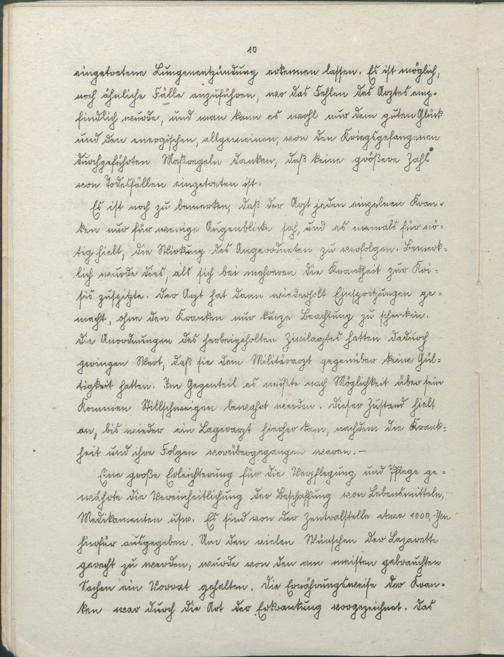 10
eingetretene Lungenentzündung erkennen lassen. Es ist möglich,
noch ähnliche Fälle anzuführen, wo das Fehlen des Arztes emp-
findlich wurde, und man kann es wohl nur dem guten Glück
und den energischen, allgemeinen, von den Kriegsgefangenen
durchgeführten Maßregeln danken, daß keine größere Zahl
von Todesfällen eingetreten ist.
Es ist noch zu bemerken, daß der Arzt jeden einzelnen Kran-
ken nur für wenige Augenblicke sah, und es niemals für nö-
tig hielt, die Wirkung des Angeordneten zu verfolgen. Bemerk-
lich wurde dies, als sich bei mehreren die Krankheit zur Kri-
sis zuspitzte. Der Arzt hat dann wiederholt Einspritzungen ge-
macht, ohne den Kranken nur kurze Beachtung zu schenken.
Die Anordnungen des herbeigeholten Zivilarztes hatten dadurch
geringen Wert, daß sie dem Militärarzt gegenüber keine Gül-
tigkeit hatten. Im Gegenteil es mußte nach Möglichkeit über sein
Kommen Stillschweigen bewahrt werden. Dieser Zustand hielt
an, bis wieder ein Lagerarzt hierher kam, nachdem die Krank-
heit und ihre Folgen vorübergegangen waren. -
Eine große Erleichterung für die Verpflegung und Pflege ge-
währte die Vereinheitlichung der Beschaffung von Lebensmitteln,
Medikamenten usw. Es sind von der Zentralstelle etwa 1000 Yen
hierfür ausgegeben. Um den vielen Wünschen der Lazarette
gerecht zu werden, wurde von den am meisten gebrauchten
Sachen ein Vorrat gehalten. Die Ernährungsweise der Kran-
ken war durch die Art der Erkrankung vorgezeichnet. Das